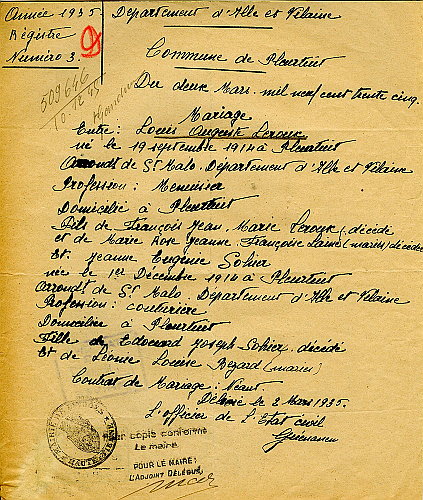 Année 1935.
Département d'Ille et Vilaine
Régistre
Numéro 3.
509646
Commune de Pleurtuit
Du deux Mars. mil neuf cent trente cinq.
Mariage
Entre: Louis Auguste Leroux
né le 19 septembre 1914 à Pleurtuit
Arrondt de St Malo. Département d'Ille et Vilaine
Profession: Menuisier
Domicilié à Pleurtuit
Fils de François Jean. Marie Leroux, décédé
et de Marie Rose Jeanne Françoise Lainé (mariés) décédée
Et. Jeanne Eugénie Sohier
née le 1er Décembre 1914 à Pleurtuit
Arrondt de St Malo. Département d'Ille et Vilaine
Profession: couturière
Domiciliée à Pleurtuit
Fille de Edouard Joseph Sohier. décédé
Et de Léonie Louise Bezard (mariés)
Contrat de Mariage: Néant.
Délivré le 2 Mars 1935.
L'officier de l'Etat civil
Pour copie conforme
Le maire
POUR LE MAIRE:
L'ADJOINT DÉLÉGUÉ,